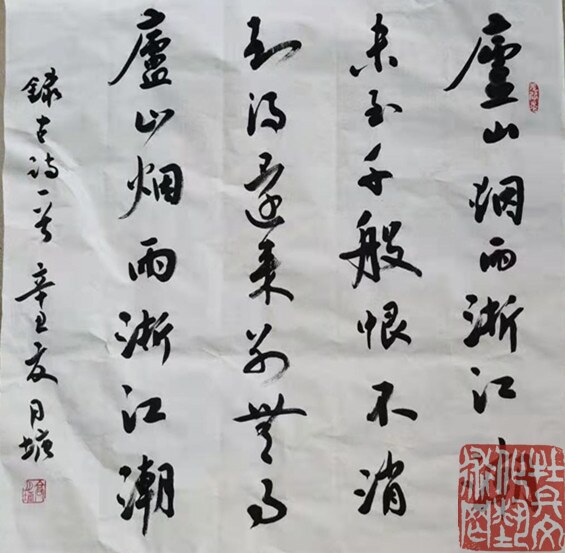 廬山烟雨浙江
未至千般恨不消
到得還来别無事
廬山烟雨浙江潮
錄古詩一首 辛丑夏月塘